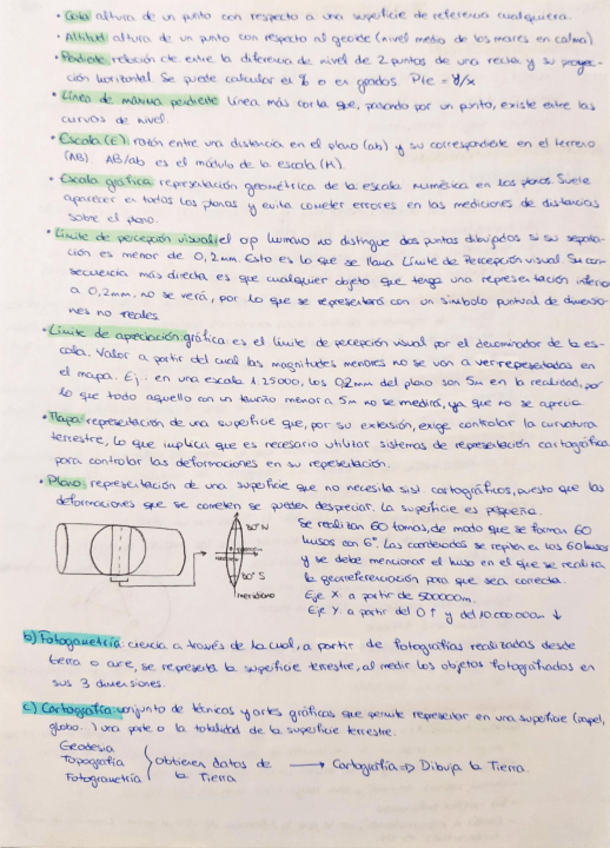 · Cota altura de un punto con respecto a una superficie de referencia cualquiera.
· Altitud altura de un punto con respecto al geoide (nivel medio de los mares en calma)
· Pendiente relación de entre la diferencia de nivel de 2 puntos de una recta y su proyec-
ción horizontal. Se puede calcular en % o en grados. Pte = y/x
· Línea de máxima pendiente línea más corta que, pasando por un punto, existe entre las
curvas de nivel.
· Escala (E) razón entre una distancia en el plano (ab) y su correspondiente en el terreno
(AB). AB/ab es el módulo de la escala (M).
· Escala gráfica representación geométrica de la escala numérica en los planos. Suele
aparecer en todos los planos y evita cometer errores en las mediciones de distancias
sobre el plano.
· Límite de percepción visual: el op humano no distingue dos puntos dibujados si su separa-
ción es menor de 0,2mm. Esto es lo que se llama Límite de Percepción visual. Su con-
secuencia más directa es que cualquier objeto que tenga una representación inferio
a 0,2mm. no se verá, por lo que se representará con un símbolo puntual de dimensio-
nes no reales.
· Límite de apreciación gráfica es el límite de pecepción visual por el denominador de la es-
cala. Valor a partir del cual las magnitudes menores no se van a ver representadas en
el mapa. Ej.: en una escala 1:25000, los 0,2mm del plano son 5m en la realidad, por
lo que todo aquello con un tamaño menor a 5m no se medirá, ya que no se aprecia.
· Mapa: representación de una superficie que, por su extensión, exige controlar la curvatura
terrestre, lo que implica que es necesario utilizar sistemas de representación cartográfica
para controlar las deformaciones en su representación.
· Plano: representación de una superficie que no necesita sist. cartográficos, puesto que las
deformaciones que se cometen se pueden despreciar. La superficie es pequeña.
80° N
80° S
meridiano
Se realizan 60 tomas, de modo que se forman 60
husos con 6°. Las coordenadas se repiten en los 60 husos
y se debe mencionar el huso en el que se realiza
la georreferenciación para que sea correcta.
Eje X: a partir de 500000m.
Eje Y: a partir del 0 ↑ y del 10 000 000m ↓
b) Fotogametría: ciencia a través de la cual, a partir de fotografías realizadas desde
tierra o aire, se representa la superficie terrestre, al medir los objetos fotografiados en
sus 3 dimensiones.
c) Cartografía: conjunto de técnicas y artes gráficas que permite representar en una superficie (papel,
globo...) una parte o la totalidad de la superficie terrestre.
Geodesia
Topografía
Fotogrametría
obtienen datos de
la Tierra
→ Cartografía ⇒ Dibuja la Tierra.